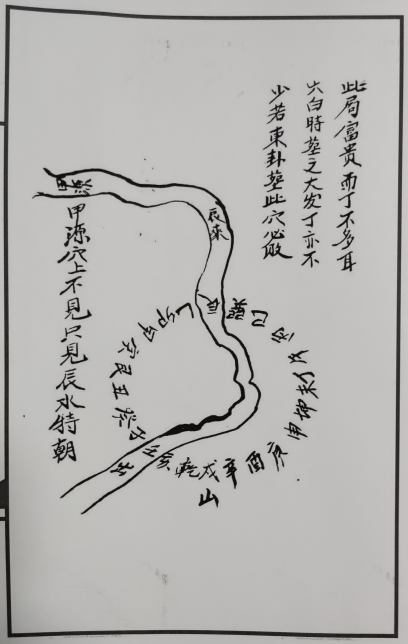 此局富贵而丁不多耳
六白時塟之大发丁亦不
少若東卦塟此穴必敗
辰來
甲源穴上不見只見辰水特朝
辰巽巳丙午丁未坤申庚酉辛戌乾亥壬子癸丑艮寅甲卯乙
山